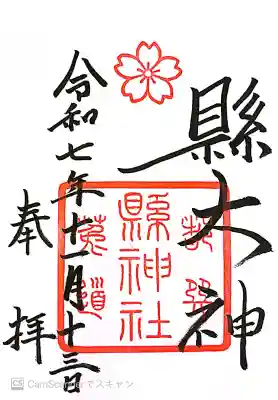 縣大神
縣神社
菟道
令和七年十一月十三日
奉拝
CS CamScannerでスキャン